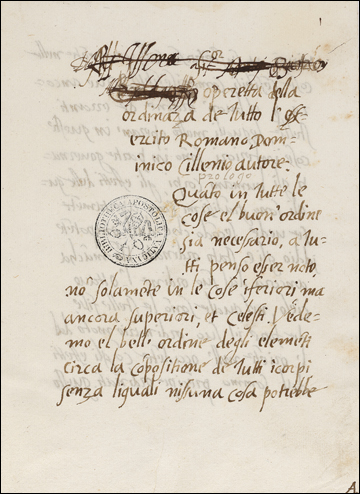 operetta della
ordinanza de tutto l'es=
sercito Romano, Dom=
inico Cillenio autore:
prologo
Quãto in tutte le
cose el buon' ordine
sia necessario, a tu=
tti penso esser noto,
nõ solamẽte in le cose ĩferiori ma
ancora superiori, et Celesti. Vede=
mo el bell' ordine degli elemẽti
circa la cõpositione de tutti i corpi
senza li quali nissuna cosa potrebbe
BIBLIOTHECA APOSTOLICA VATICANA
A